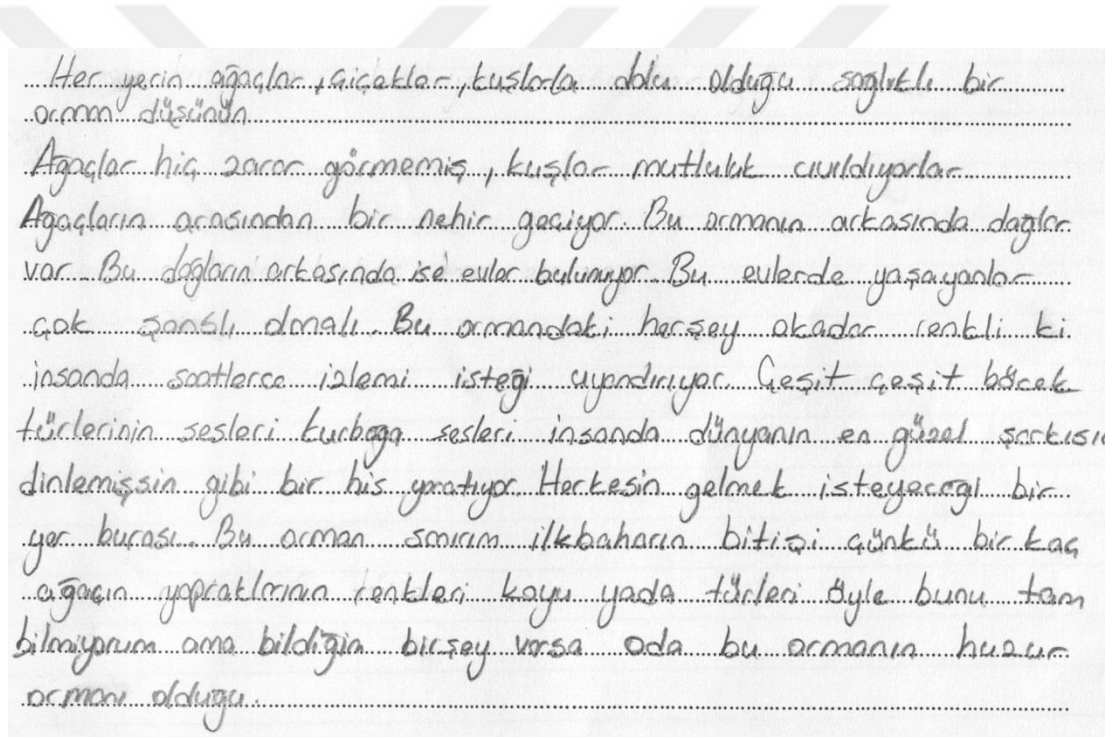 Her yerin ağaçlar, çiçekler, kuşlarla dolu olduğu sağlıklı bir
orman düşünün.
Ağaçlar hiç zarar görmemiş, kuşlar mutluluk cıvıldıyorlar.
Ağaçların arasından bir nehir geçiyor. Bu ormanın arkasında dağlar
var. Bu dağların arkasında ise evler bulunuyor. Bu evlerde yaşayanlar
çok şanslı olmalı. Bu ormandaki herşey okadar renkli ki
insanda saatlerce izlemi isteği uyandırıyor. Çeşit çeşit böcek
türlerinin sesleri kurbağa sesleri insanda dünyanın en güzel şarkısı
dinlemişsin gibi bir his yaratıyor. Herkesin gelmek isteyeceği bir
yer burası. Bu orman ilkbaharın bitişi çünkü bir kaç
ağacın yapraklarının renkleri koyu yada türleri öyle bunu tam
bilmiyorum ama bildiğin birşey varsa oda bu ormanın huzur
ormanı olduğu.